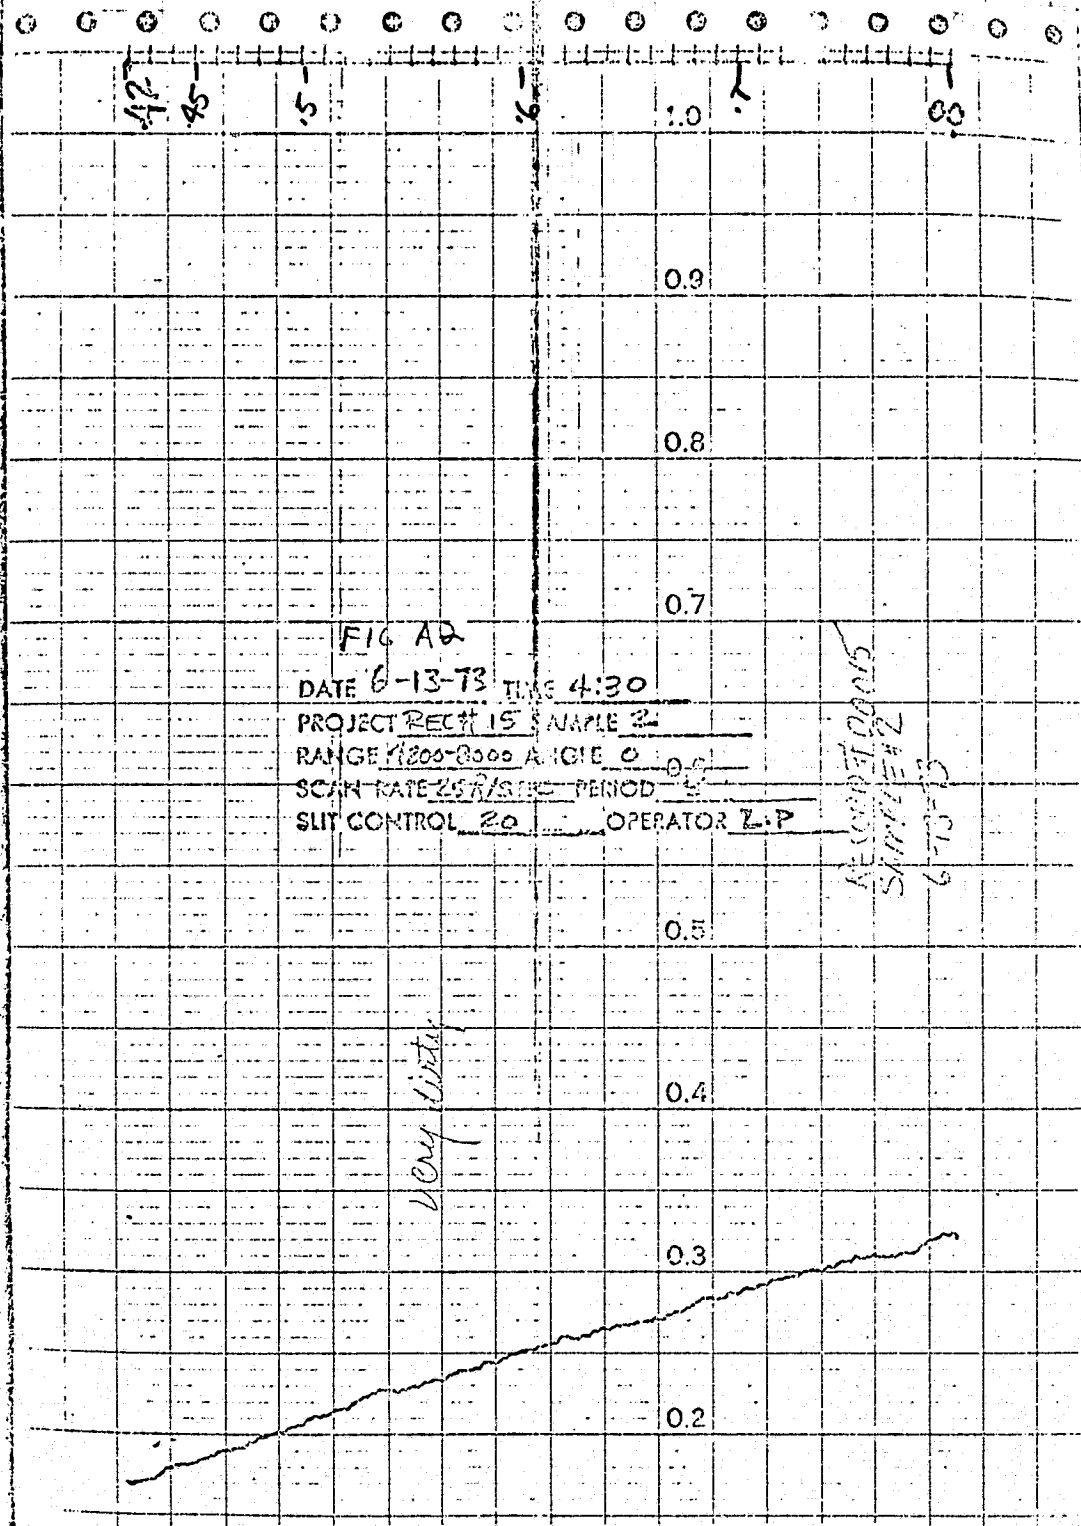 .42 .45 .5 .6 .7 .8
1.0
0.9
0.8
0.7
FIG A2
DATE 6-13-73 TIME 4:30
PROJECT REC# 15 SAMPLE 2
RANGE 4200-8000 ANGLE 0
0.6
SCAN RATE PERIOD
SLIT CONTROL 20 OPERATOR Z.P
SAMPLE #2
6-13-73
0.5
Very dirty
0.4
0.3
0.2